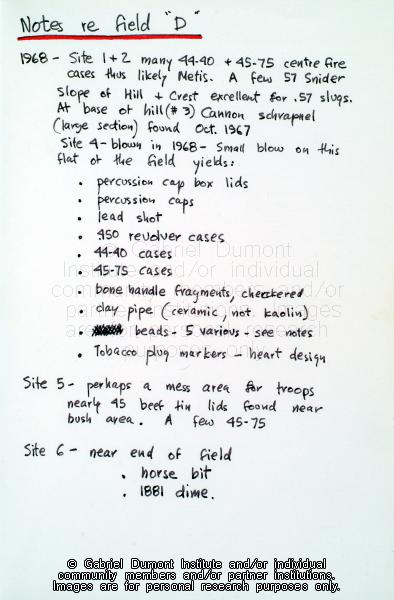 Notes re field "D"
1968 - Site 1+2 many 44-40 + 45-75 centre fire
cases thus likely Metis. A few 57 Snider
Slope of Hill + Crest excellent for .57 slugs.
At base of hill (#3) Cannon schrapnel
(large section) found Oct. 1967
Site 4 - blown in 1968 - Small blow on this
flat of the field yields:
• percussion cap box lids
• percussion caps
• lead shot
• 450 revolver cases
• 44-40 cases
• 45-75 cases
• bone handle fragments, checkered
• clay pipe (ceramic, not kaolin)
• beads - 5 various - see notes
• Tobacco plug markers - heart design
Site 5 - perhaps a mess area for troops
nearly 45 beef tin lids found near
bush area. A few 45-75
Site 6 - near end of field
• horse bit
• 1881 dime.
© Gabriel Dumont
Institute and/or individual
community members and/or
partner institutions. Images
are for personal research
purposes only.
© Gabriel Dumont Institute and/or individual
community members and/or partner institutions.
Images are for personal research purposes only.